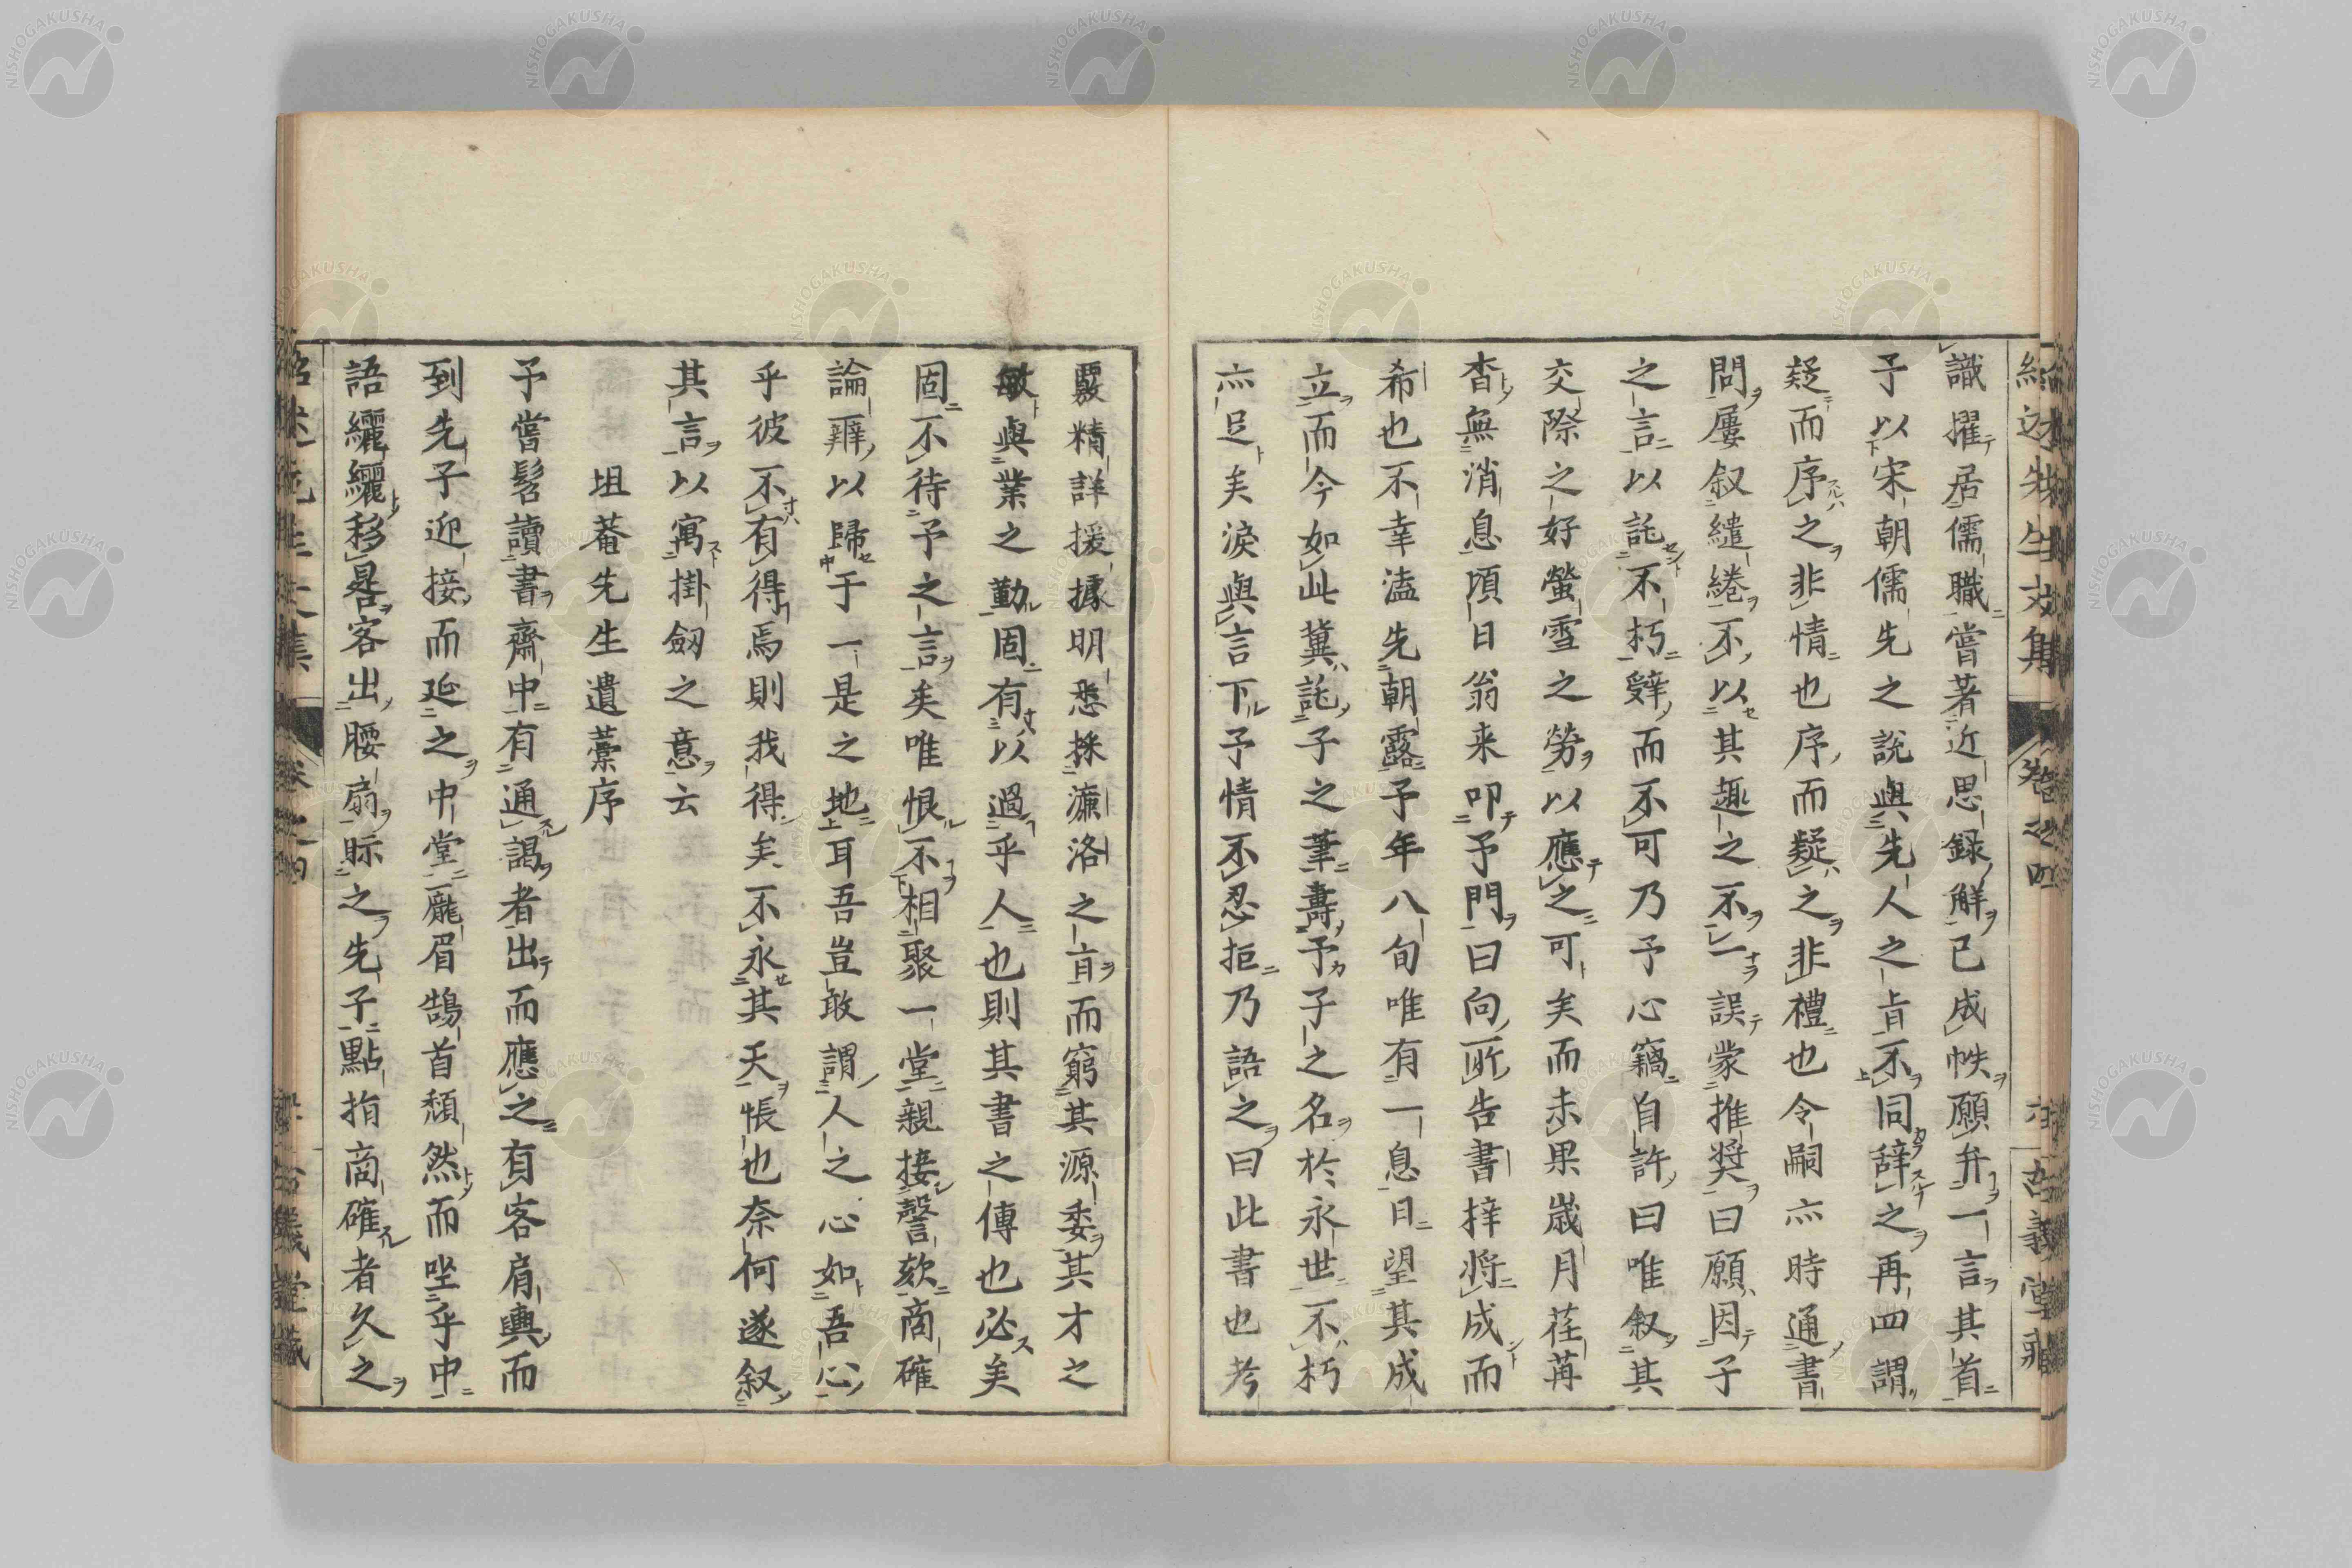 識擢居儒職嘗著近思録解已成帙願弁一言其首
予以宋朝儒先之説與先人之㫖不同辭之再四謂
疑而序之非情也序而疑之非禮也令嗣亦時通書
問屢叙繾綣不以其趣之不一誤蒙推奨曰願因子
之言以託不朽辤而不可乃予心竊自許曰唯叙其
交際之好螢雪之勞以應之可矣而未果歳月荏苒
杳無消息頃日翁来叩予門曰向所告書梓将成而
希也不幸溘先朝露予年八旬唯有一息日望其成
立而今如此冀託子之筆壽予子之名於永世不朽
亦足矣淚與言下予情不忍拒乃語之曰此書也考
覈精詳援據明悉採濂洛之㫖而窮其源委其才之
敏與業之勤固有以過乎人也則其書之傳也必矣
固不待予之言矣唯恨不相聚一堂親接謦欬商確
論辨以歸于一是之地耳吾豈敢謂人之心如吾心
乎彼不有得焉則我得矣不永其天悵也奈何遂叙
其言以寓掛劔之意云
坦菴先生遺藁序
予嘗髫讀書齋中有通謁者出而應之有客肩輿而
到先子迎接而延之中堂厖眉鵠首頽然而坐乎中
語纚纚移晷客出腰扇眎之先子點指商確者久之
紹述先生文集
卷之四
古義堂藏